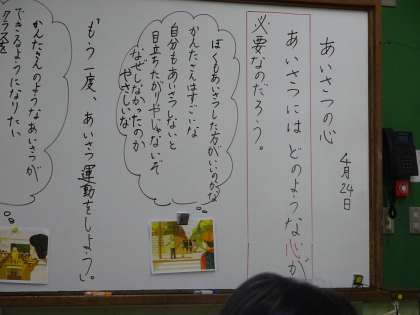 4月24日
あいさつの心
あいさつには どのような心が
必要なのだろう。
ぼくもあいさつした方がいいのかな
かんたさんはすごいな
自分もあいさつしないと
目立ちたがりやじゃないぞ
なぜしなかったのか
やさしいな
「もう一度、あいさつ運動をしよう。」
かんたさんのようなあいさつが
できるようになりたい
クラスを